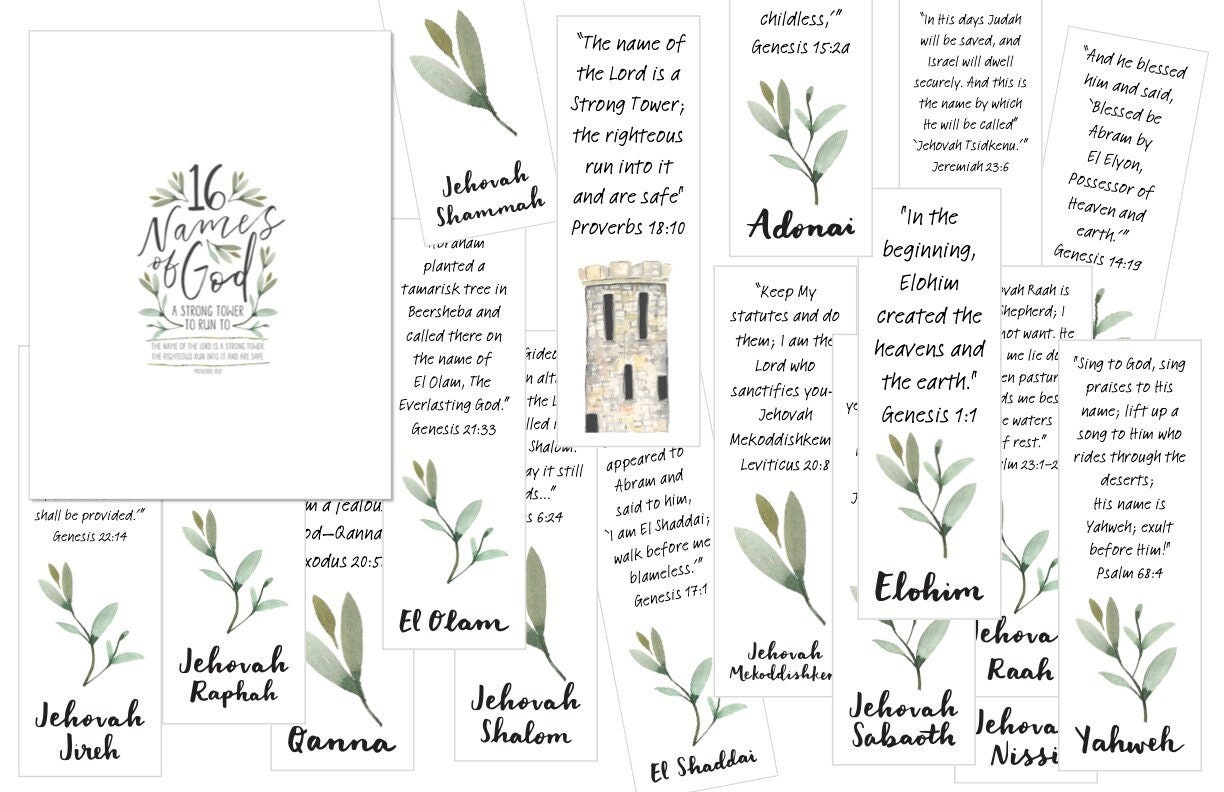 16
Names
of God
A STRONG TOWER
TO RUN TO
THE NAME OF THE LORD IS A STRONG TOWER,
THE RIGHTEOUS RUN INTO IT AND ARE SAFE.
Jehovah
Shammah
"The name of
the Lord is a
Strong Tower;
the righteous
run into it
and are safe"
Proverbs 18:10
childless,'"
Genesis 15:2a
Adonai
"In His days Judah
will be saved, and
Israel will dwell
securely. And this is
the name by which
He will be called"
'Jehovah Tsidkenu.'"
Jeremiah 23:6
"And he blessed
him and said,
'Blessed be
Abram by
El Elyon,
Possessor of
Heaven and
earth.'"
Genesis 14:19
planted a
tamarisk tree in
Beersheba and
called there on
the name of
El Olam, The
Everlasting God."
Genesis 21:33
El Olam
"Keep My
statutes and do
them; I am the
Lord who
sanctifies you-
Jehovah
Mekoddishkem
Leviticus 20:8
Jehovah
Mekoddishkem
"In the
beginning,
Elohim
created the
heavens and
the earth."
Genesis 1:1
Elohim
ovah Raah is
hepherd; I
not want. He
me lie do
en pastur
ds me bes
e waters
f rest."
lm 23:1-2
Jehova
Raah
"Sing to God, sing
praises to His
name; lift up a
song to Him who
rides through the
deserts;
His name is
Yahweh; exult
before Him!"
Psalm 68:4
Yahweh
shall be provided.'"
Genesis 22:14
Jehovah
Jireh
Jehovah
Raphah
m a jealou
od—Qanna
xodus 20:5
Qanna
Gideo
n alt
the L
lled i
Shalom.
ay it still
ds..."
s 6:24
Jehovah
Shalom
appeared to
Abram and
said to him,
'I am El Shaddai;
walk before me
blameless.'"
Genesis 17:1
El Shaddai
ye
Jehovah
Sabaoth
Jehova
Nissi